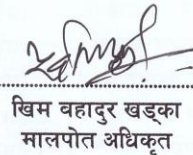 खिम बहादुर खड्का
मालपोत अधिकृत